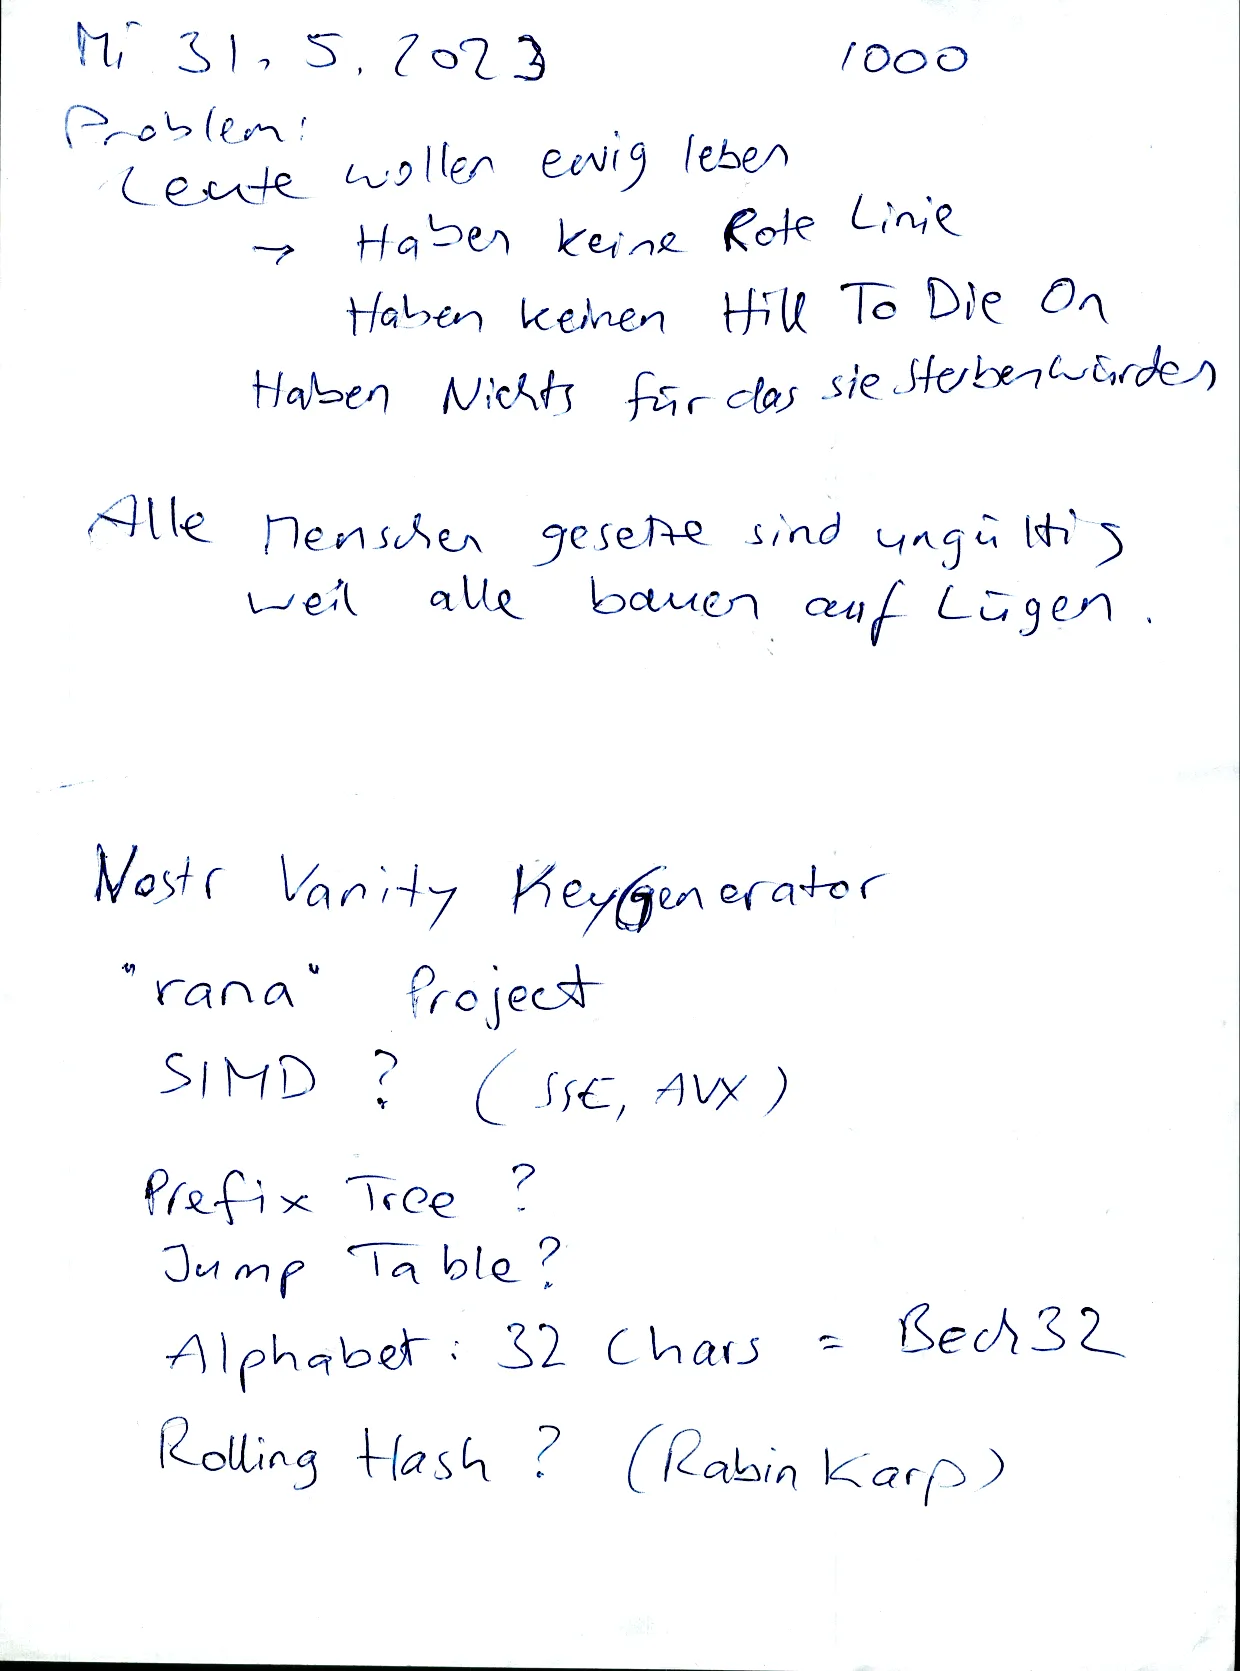 Mi 31. 5. 2023 1000
Problem:
Leute wollen ewig leben
→ Haben keine Rote Linie
Haben keinen Hill To Die On
Haben Nichts für das sie sterben würden
Alle Menschen gesetze sind ungültig
weil alle bauen auf Lügen.
Nostr Vanity KeyGenerator
"rana" Project
SIMD ? (SSE, AVX)
Prefix Tree ?
Jump Table?
Alphabet: 32 Chars = Bech32
Rolling Hash ? (Rabin Karp)